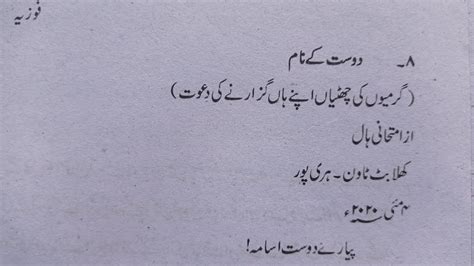 فوزیہ
۸۔ دوست کے نام
(گرمیوں کی چھٹیاں اپنے ہاں گزارنے کی دعوت)
از امتحانی ہال
کھلا بٹ ٹاون۔ ہری پور
۴ مئی ۲۰۲۰ء
پیارے دوست اسامہ!